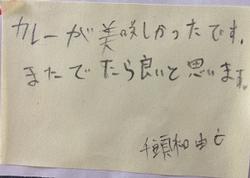 カレーが美味しかったです。
またでたら良いと思います。
千頭和